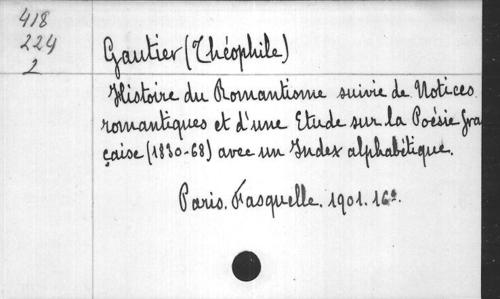 418
224
2
Gautier (Théophile)
Histoire du Romantisme suivie de Notices
romantiques et d'une Etude sur la Poésie Fran
çaise (1830-68) avec un Index alphabétique.
Paris. Fasquelle. 1901. 16º.